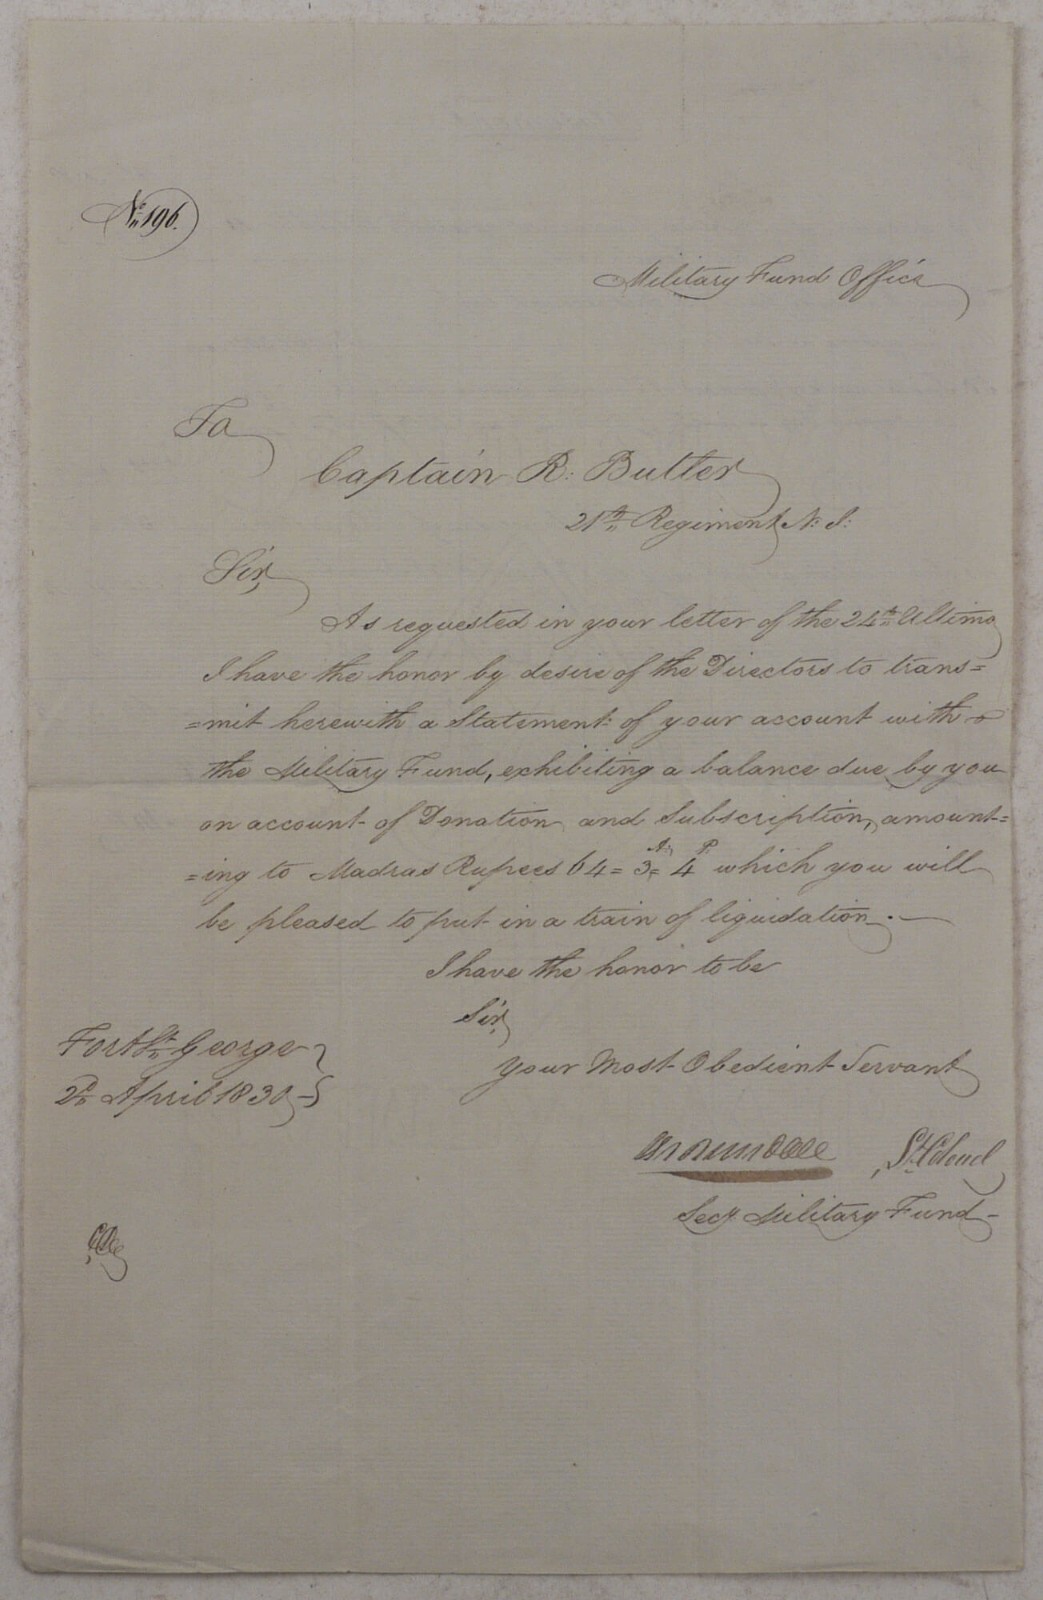 No. 196.
Military Fund Office
To
Captain R: Butler
21th Regiment N: I:
Sir,
As requested in your letter of the 24th Ultimo
I have the honor by desire of the Directors to trans=
=mit herewith a Statement of your account with
the Military Fund, exhibiting a balance due by you
on account of Donation and Subscription, amount=
=ing to Madras Rupees 64=3=4 which you will
A: P:
be pleased to put in a train of liquidation.
I have the honor to be
Sir,
Your Most Obedient Servant
Fort St. George
2d April 1830
Lt. Colonel
Secy. Military Fund